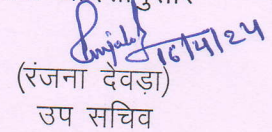 16/4/24
(रंजना देवड़ा)
उप सचिव